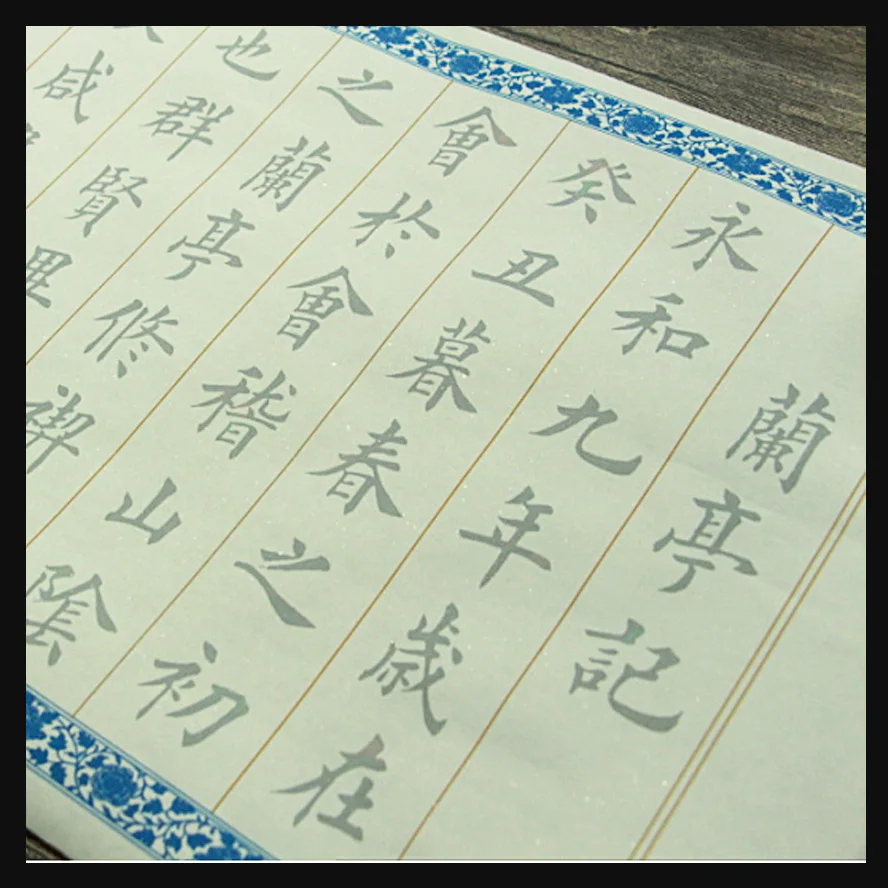 蘭亭記
永和九年歲在
癸丑暮春之初
會於會稽山陰
之蘭亭修禊
也群賢畢
咸